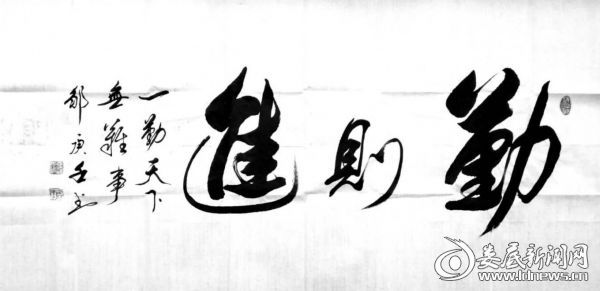 勤則進
一勤天下
無難事
庚書
娄底新闻网
www.ldnews.cn